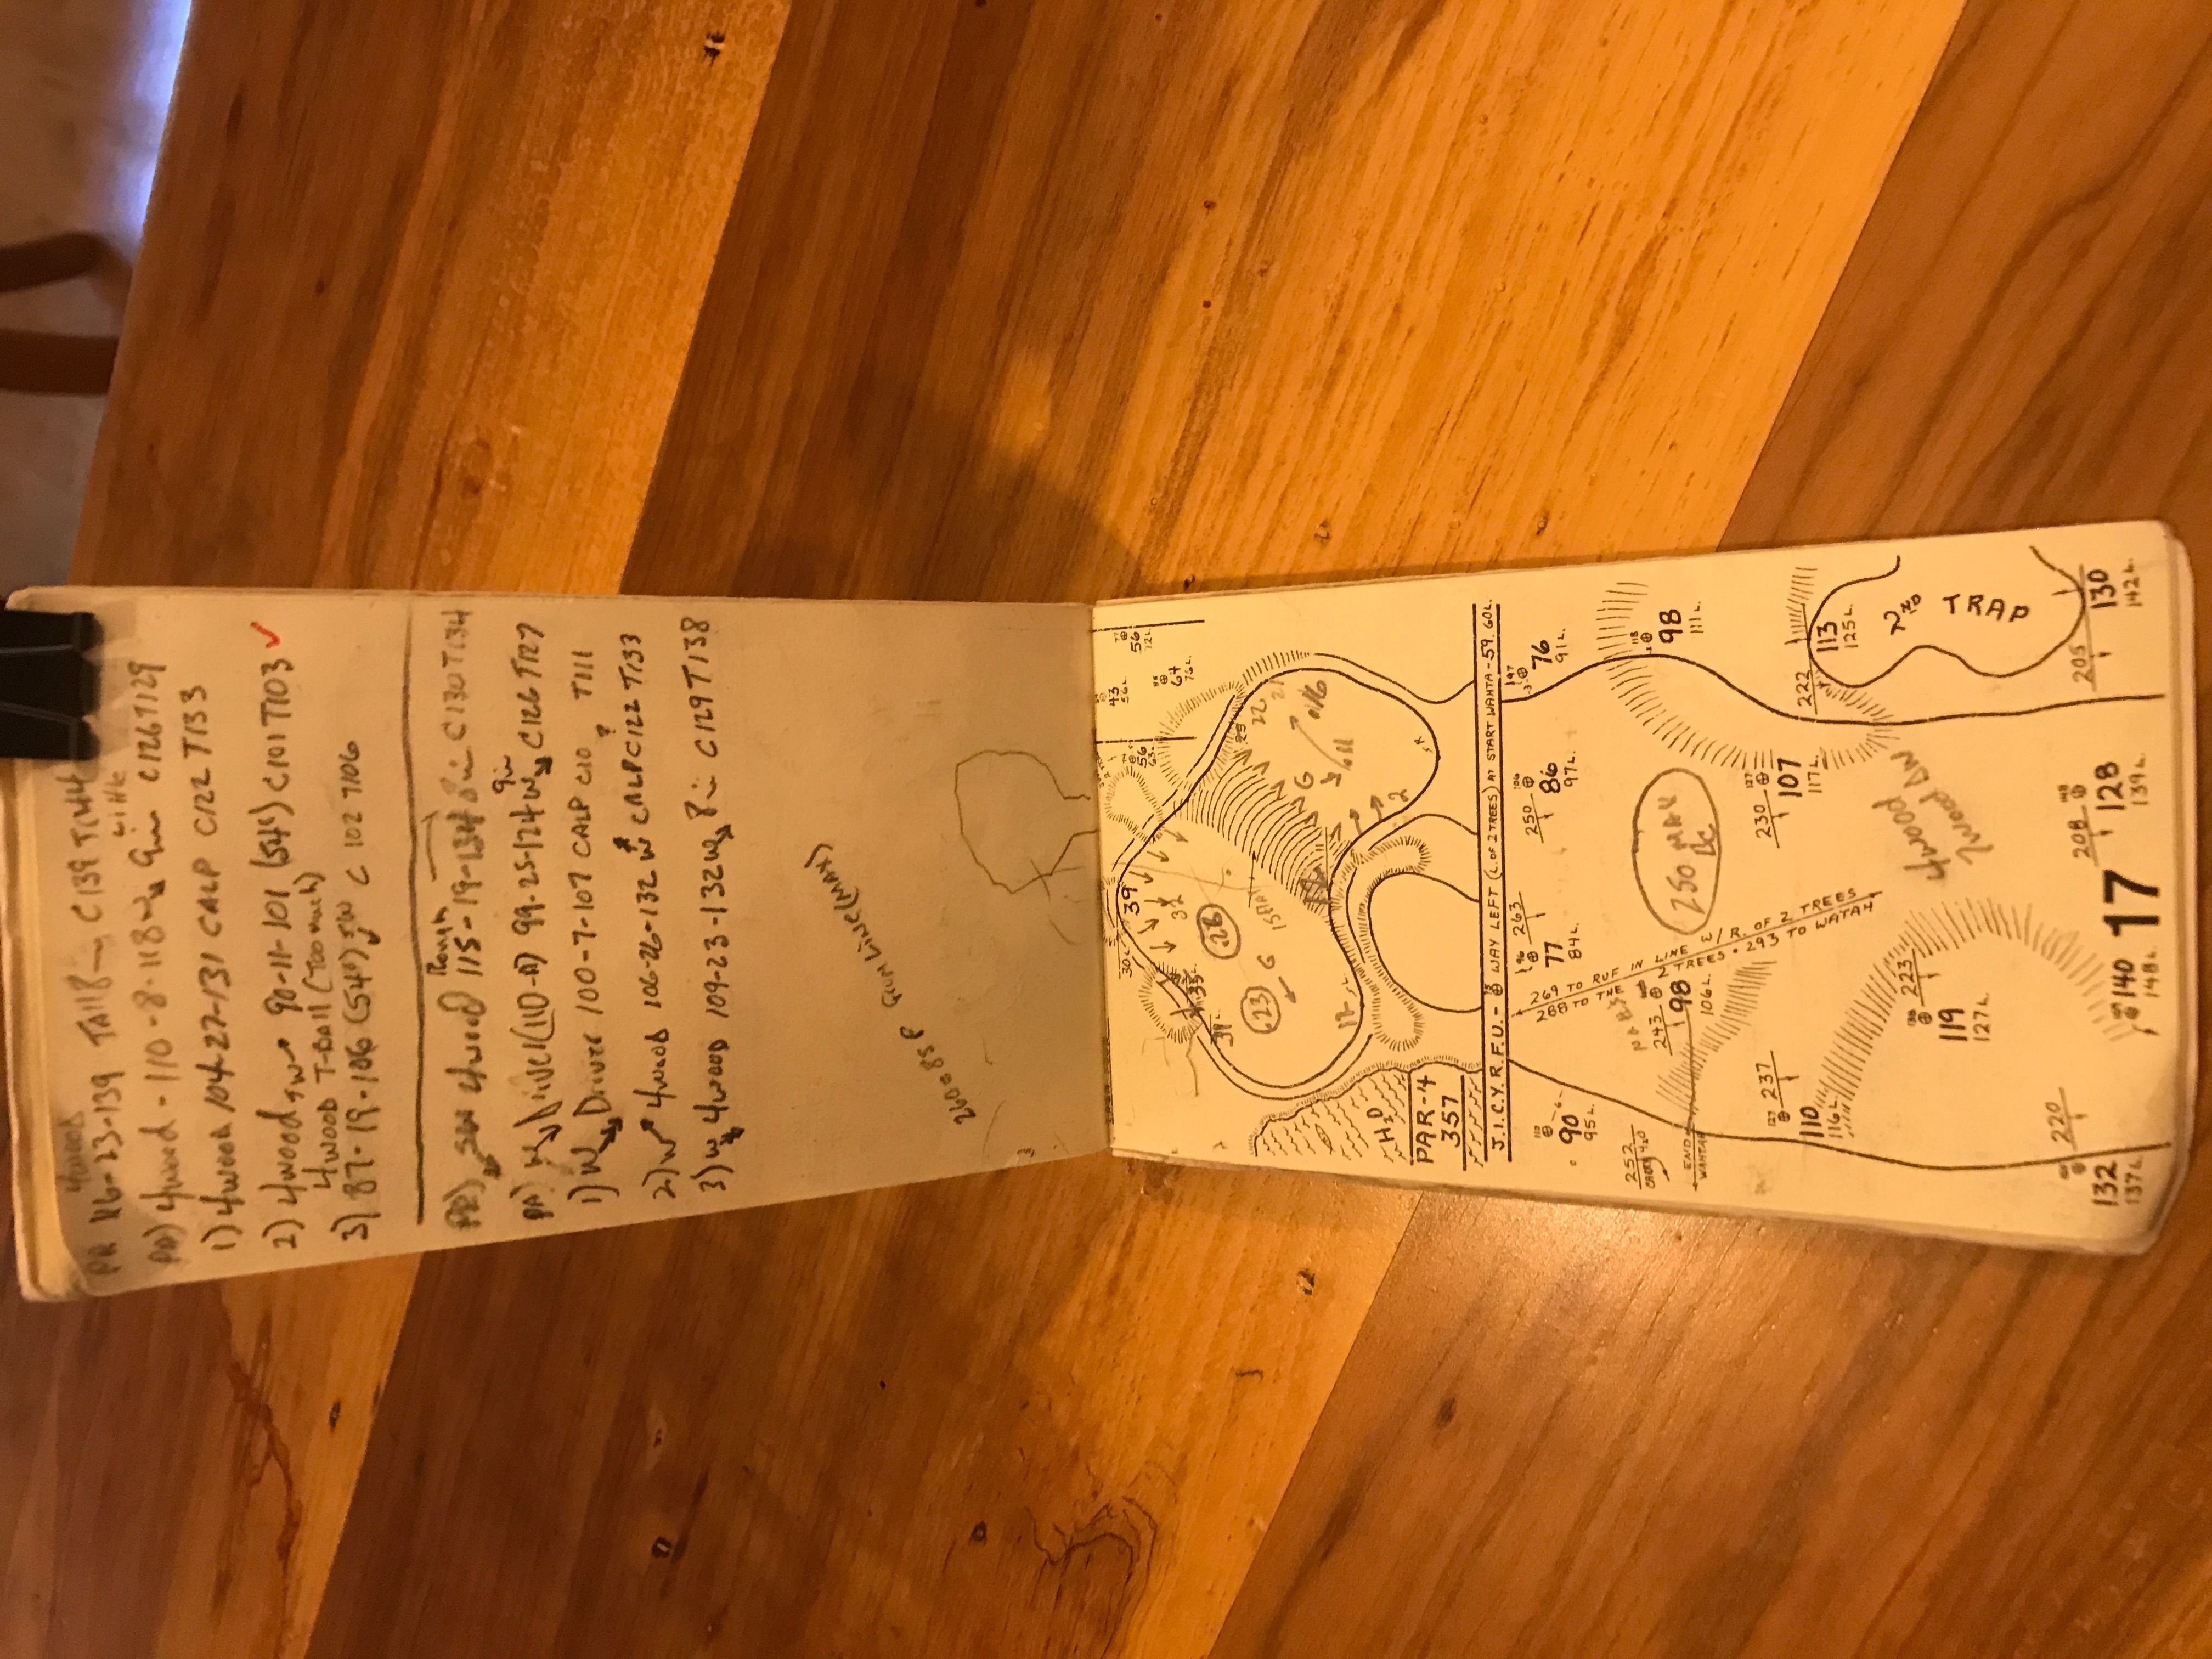 4WOOD
PR 116-23-139 C139 T144
LITTLE
PA) 4WOOD - 110-8-118 W 9in C126 T129
1) 4WOOD 104-27-131 CALP C122 T133
2) 4WOOD W 90-11-101 (54°) C101 T103 ✓
4WOOD T-BALL (TOO MUCH)
3) 87-19-106 (54°) SW C 102 T106
ROUGH
4WOOD 115-19-134 8in C130 T134
9in
PA) W DRIVER (110-A) 99-25-124 W C126 T127
1) W DRIVER 100-7-107 CALP C10? T111
2) W 4WOOD 106-26-132 W CALP C122 T133
3) W 4WOOD 109-23-132 W 8in C129 T138
GUN LINE (MAX)
260=85P
56
72L.
64
76L.
43
56L.
56
63L.
39
30L
32
28
33
23
G
G
22
21
25
2
12
H2O
PAR-4
357
J.I.C.Y.R.F.U. - WAY LEFT (L. OF 2 TREES) AT START WAHTA - 59. 60L.
97
76
91L.
106
250
86
97L.
96
263
77
84L.
90
95L.
118
98
111L.
269 TO RCF IN LINE W/R. OF 2 TREES
288 TO THE 2 TREES • 293 TO WATAH
250 MAX
DC
243
98
106L.
252
CARRY
END
WAHTAH
222
113
125L.
2ND
TRAP
127
230
107
117L.
4WOOD
2WOOD DN
127
237
110
116L.
223
119
127L.
205
130
142L.
208
128
139L.
17
140
148L.
220
132
137L.